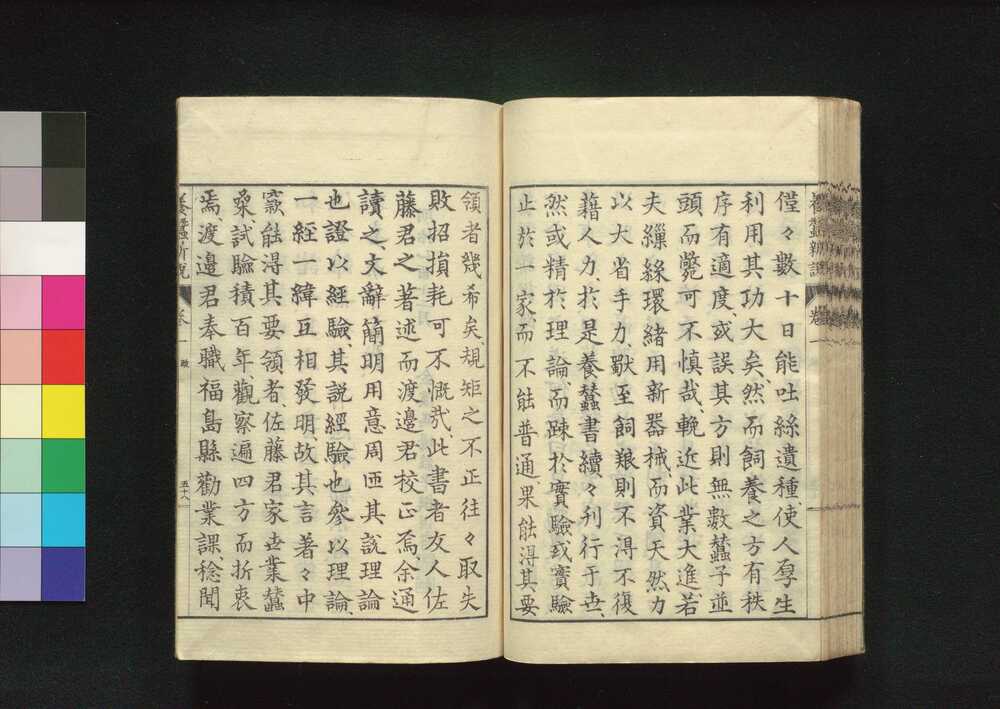 僅々數十日能吐絲遺種、使人厚生
利用其功大矣、然而飼養之方有秩
序有適度、或誤其方則無數蠶子並
頭而斃、可不慎哉、輓近此業大進、若
夫繅絲環緒用新器械、而資天然力
以大省手力、獨至飼養則不得不復
藉人力、於是養蠶書續々刊行于世、
然或精於理論、而疎於實驗、或實驗
止於一家、而不能普通、果能得其要
領者幾希矣、規矩之不正往々取失
敗招損耗可不慨哉、此書者友人佐
藤君之著述而渡邊君校正焉、余通
讀之、文辭簡明用意周匝其說理論
也證以經驗、其説經驗也參以理論
一經一緯互相發明、故其言著々中
窾能得其要領者、佐藤君家世業蠶
桑、試驗積百年觀察遍四方而折衷
焉、渡邊君奉職福島縣勸業課、稔聞
養蠶新說 卷一 跋 五十八
養蠶新說 卷